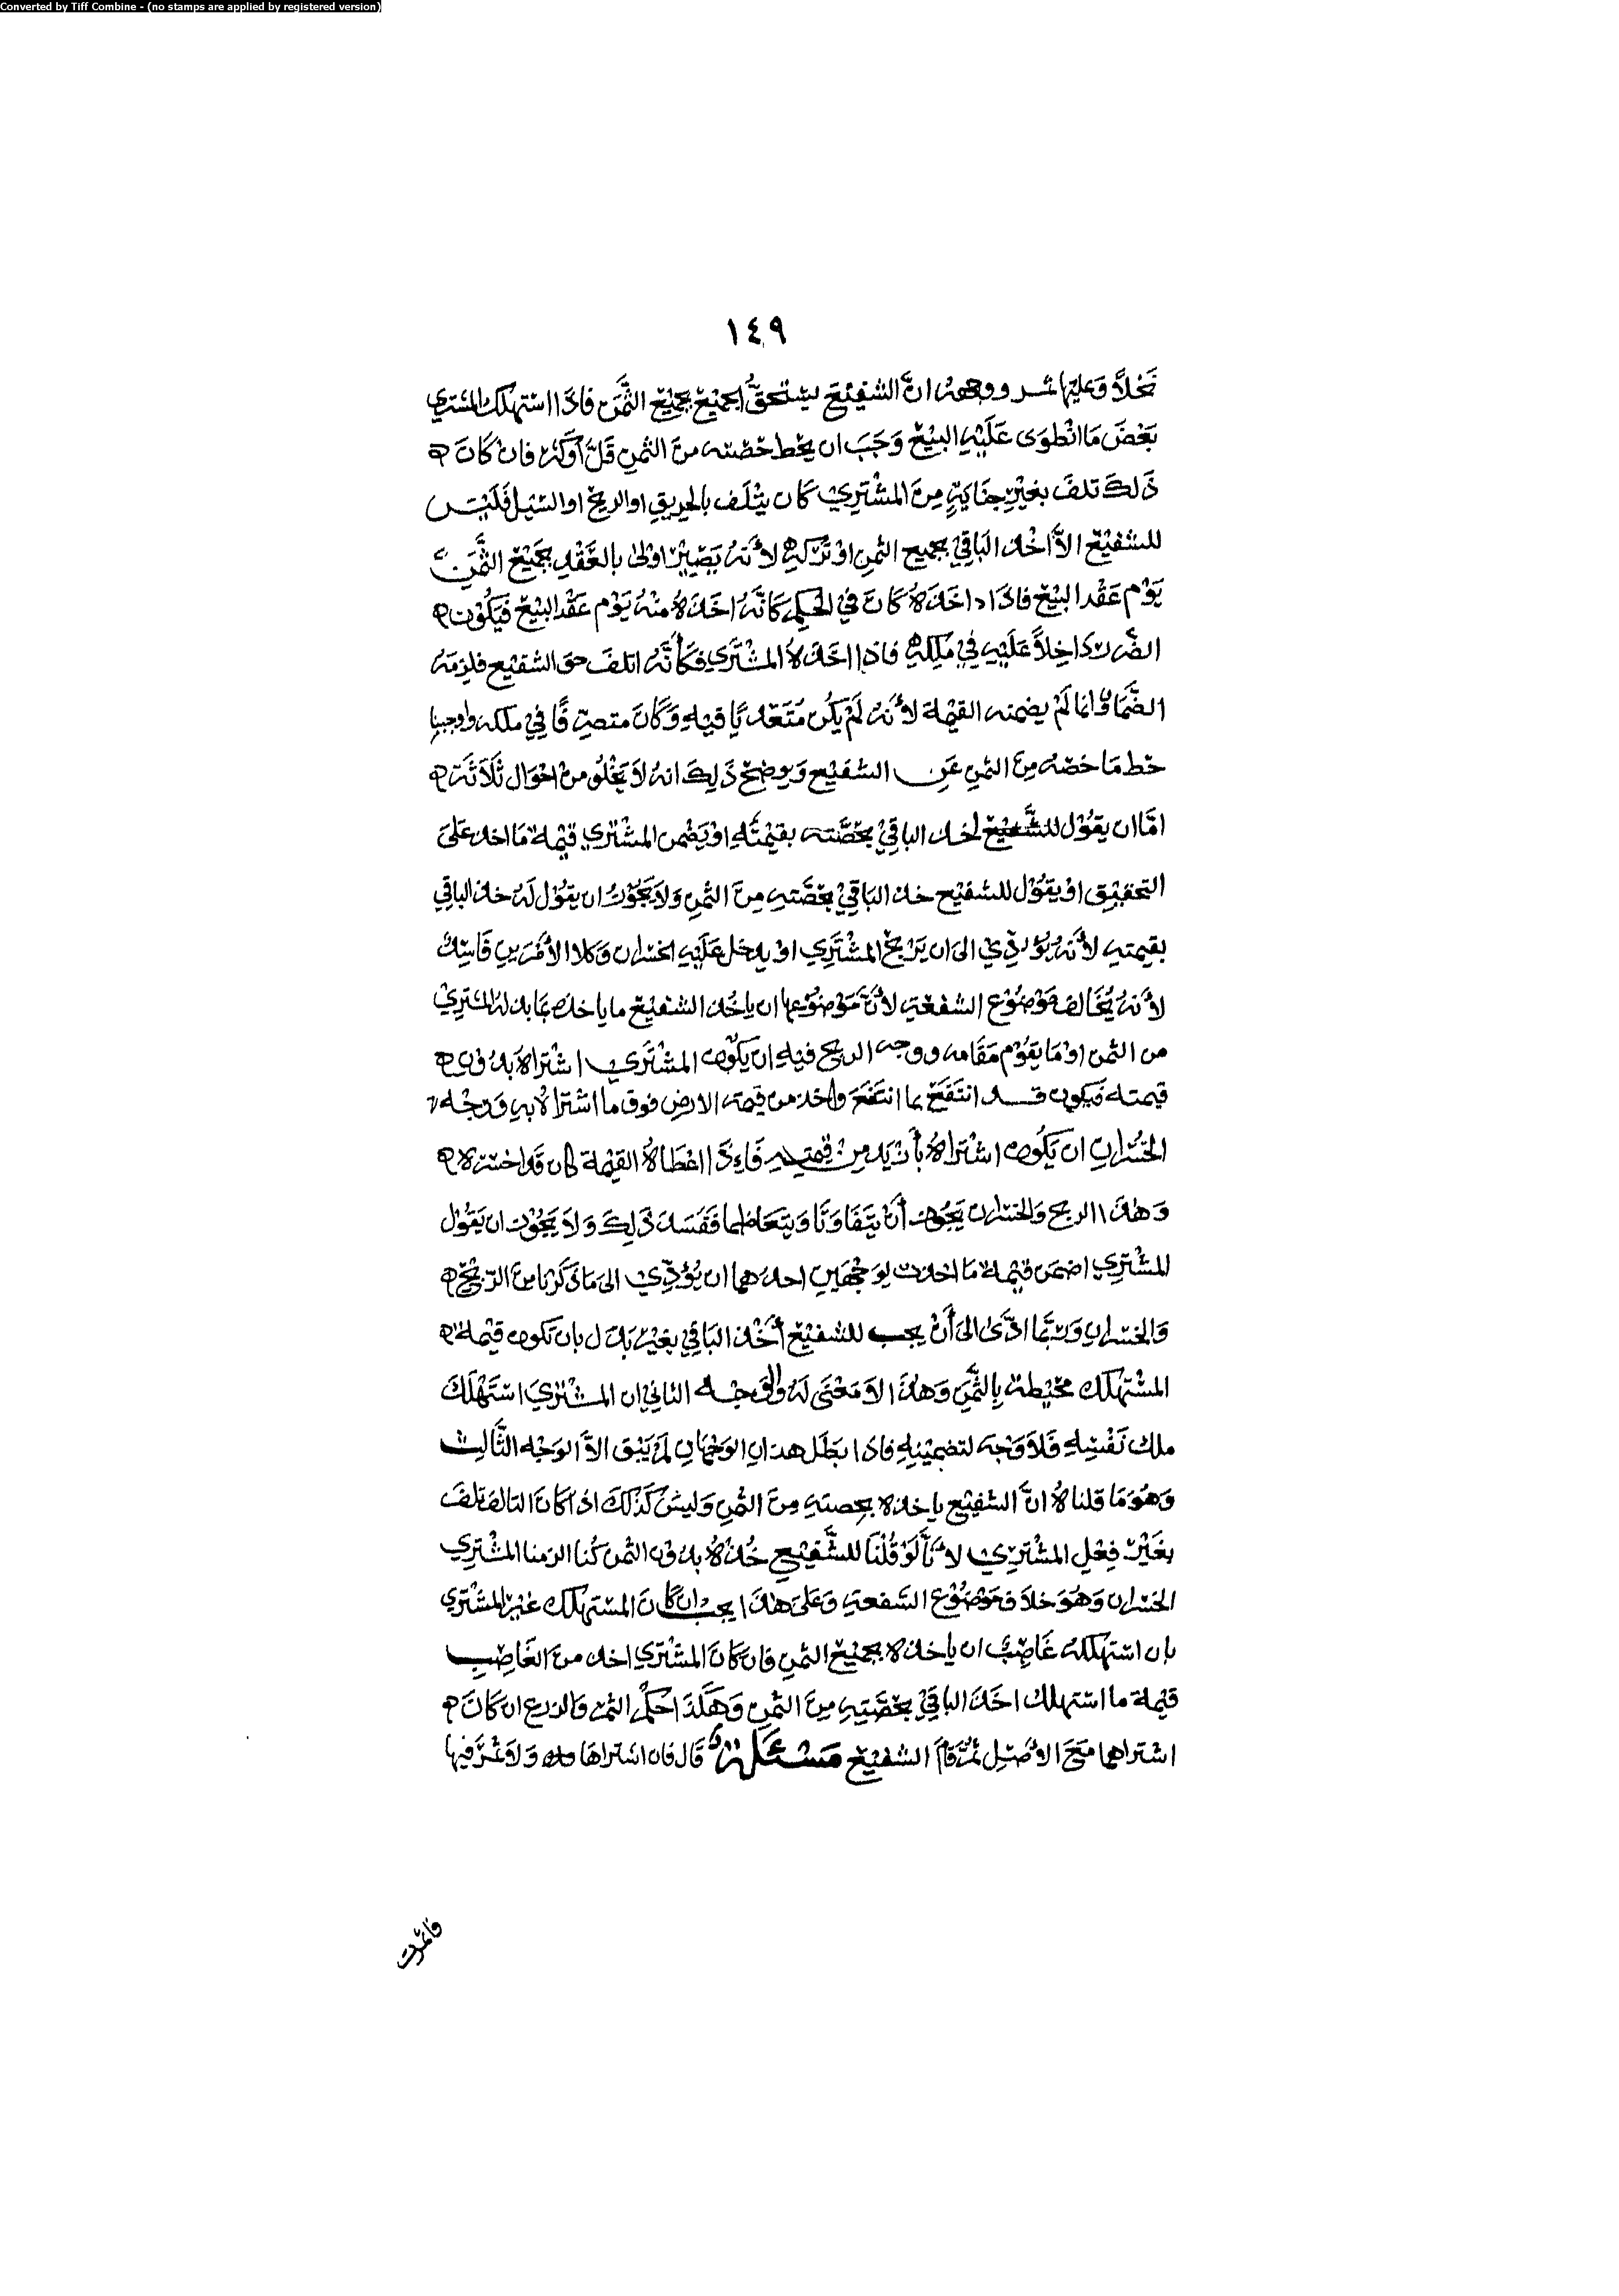 Converted by Tiff Combine - (no stamps are applied by registered version)
١٤٩
نَخْلاً وَعليها ثمر ووجهه انَّ الشفِيْعَ يستحقُّ الجميْعَ بجميْع الثَّمَن فاذَا استهلك المشتري
بَعْضَ مَا انْطوَى عَلَيْهِ البيْعُ وَجَبَ ان يحط حصّته منَ الثمنِ قَلَّ أوكثر فان كَانَ
ذَلكَ تلفَ بغيْرِ جِنَايَةٍ مِنَ المشْتَرِي كَان يتْلَف بالحريقِ او الريح او السّيْل فَلَيْسَ
للشفيْع الاَّ اخْذ البَاقِيْ بجميع الثمنِ اوْ تَرْكهِ لأنهُ يَصِيْرُ اوْلى بالعَقْدِ بجَمِيْع الثَّمَنِ
يَوْم عَقْد البيْعِ فاذَا اخَذَهُ كَانَ فِي الحكمِ كَانَّهُ اخَذَهُ منْهُ يَوْم عَقْد البيْعِ فَيَكُوْن
الضّرر دَاخِلاً عَلَيْهِ فِيْ مِلْكِهِ فاذا اخَذَهُ المشْتَرِي فكأنَّهُ اتلفَ حق الشفيْع فلزِمَهُ
الضَّمَان وانما لَمْ يضمنه القيْمة لأنهُ لَمْ يَكُن مُتَعَدّيًا فيْهِ وَكَانَ متصرّفًا فِيْ ملكه واوجبنا
حط مَا خصّهُ مِنَ الثمنِ عَنِ الشفيْع وَيوضحُ ذَلِكَ انهُ لاَ يَخْلُو منْ احْوَال ثَلاَثَة
امَّا ان يقُوْل للشَّفيْعِ خذ الباقِيْ بحصَّته بقيْمتِهِ اوْ يَضْمن المشْتَرِي قيْمة مَا اخذ عَلَى
التحقيْقِ اوْ يقُوْل للشفيْع خذ البَاقِيْ بحصَّتهِ مِنَ الثمنِ وَلاَ يَجُوْزُ ان يقُوْل لَهُ خذ الباقِي
بقيمتهِ لأنهُ يُؤدّي الى ان يَرْبَحَ المشْتَرِي اوْ يدخل عَلَيْهِ الخسْران وَكلا الأمْرَينِ فَاسِدٌ
لأنهُ يُخَالف مَوْضُوْع الشفعَةِ لأنَّ مَوْضُوْعها ان ياخُذ الشفيْع ما ياخذه بما بذله المشتري
من الثمن اوْ مَا يقُوْم مَقَامه ووجه الربح فيْهِ ان يَكُوْن المشْتَرِي اشْتراهُ بدُوْن
قيمته فَيكون قد انتفَعَ بما انتفَعَ واخذ من قيمة الارض فوق مَا اشتراهُ بهِ وَوجْه
الخسْرانِ ان يَكُون اشْتراهُ بأزْيَد مِنْ قِيْمتِهِ فَاِذَا اعْطَاهُ القيْمة كان قد اخسَره
وَهذَا الربح وَالخسْران يَجُوز أنْ يتَفَاوَتَا وَيتَعَاظما فَفَسَدَ ذَلِكَ وَلاَ يَجُوْز ان يَقُوْل
للمشْتَرِي اضمَن قيْمة مَا اخذت لِوَجْهَيْنِ احدهما ان يُؤَدّي الى مَا ذكَرْنا مِنَ الرّبْح
وَالخسْرانِ وَربَّما ادّى الى أنْ يجب للشفيْع أخْذ البَاقِي بغيْر بَدَل بان تكون قيْمة
المسْتهْلك محيْطة بالثَّمَنِ وَهذَا لاَ مَعْنَى لَهُ وَالوَجه الثانِي ان المشْتَري استَهْلَكَ
ملك نَفْسِهِ فَلاَ وَجهَ لتضمِيْنِهِ فاذَا بَطَل هذان الوَجْهَانِ لَمْ يَبْقَ الاَّ الوَجْه الثَّالث
وَهُوَ مَا قلناهُ انَّ الشفيْع ياخذه بحصتهِ مِنَ الثمنِ وَليسَ كَذَلكَ اذا كانَ التالف تلفَ
بغَيْرِ فِعْلِ المشْتَرِي لأنَّا لَوْ قُلْنَا للشَّفِيْعِ خُذْهُ بدُوْن الثمن كُنا الزمنا المشْتَرِي
الخسْران وَهُوَ خلاَف مَوْضُوْع الشَّفعَةِ وَعَلَى هذَا يجب ان كانَ المسْتهْلك غيْر المشْتَرِي
بان استهْلكه غَاصِبٌ ان ياخذه بجميْع الثمنِ فان كَانَ المشْتَرِي اخذ منَ الغَاصِبِ
قيْمة ما استهلك اخَذَ الباقِيْ بحصَّتِهِ مِنَ الثمنِ وَهَكَذَا حكم الثمر وَالزرع ان كَانَ
اشتراهما مَعَ الأصْلِ ثمَّ قَامَ الشفيْع مَسْئَلَة قَال فان اشتراهَا وَلاَ ثمَرَ فيها
فاثمرت